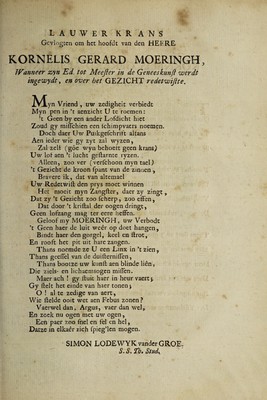 LAUWER KRANS
Gevlogten om het hoofdt van den HEERE
KORNELIS GERARD MOERINGH,
Wanneer zyn Ed tot Meester in de Geneeskunst werdt
ingewydt, en over het GEZICHT redetwiste.
Myn Vriend, uw zedigheit verbiedt
Myn pen in 't aenzicht U te roemen:
't Geen by een ander Lofdicht hiet
Zoud gy misschien een schimpvaers noemen.
Doch daer Uw Pinkgeschrift altans
Aen ieder wie gy zyt zal wyzen,
Zal zelf (góe wyn behoeit geen krans)
Uw lof aen 't lucht gestarnte ryzen.
Alleen, zoo ver (verschoon myn tael)
't Gezicht de kroon spant van de zinnen,
Bravere ik, dat van altemael
Uw Redetwist den prys moet winnen
Het moeit myn Zangster, daer zy zingt,
Dat zy 't Gezicht zoo scherp, zoo effen,
Dat door 't kristal der oogen dringt,
Geen lofzang mag ter eere heffen.
Geloof my MOERINGH, uw Verbodt
't Geen haer de luit weêr op doet hangen,
Bindt haer den gorgel, keel en strot,
En rooft het pit uit hare zangen.
Thans noemde ze U een Linx in 't zien,
Thans geessel van de duisternissen,
Thans bootze uw kunst aen blinde liên,
Die ziels- en lichaemsogen missen.
Maer ach! gy stuit haer in heur vaert;
Gy stelt het einde van haer tonen;
O! al te zedige van aert,
Wie stelde ooit wet aen Febus zonen?
Vaerwel dan, Argus, vaer dan wel,
En zoek nu ogen met uw ogen,
Een paer zoo snel en fel en hel,
Datze in elkaêr zich spieg'len mogen.
SIMON LODEWYK vander GROE.
S.S. Th. Stud.